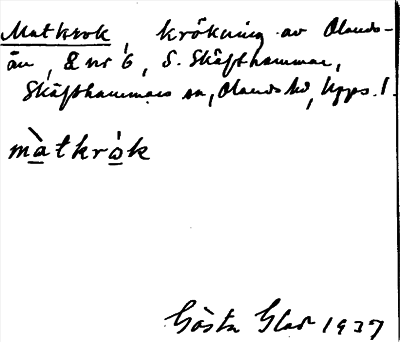 Matkrok, krökning av Olands-
ån, 8 nr 6, S. Skäfthammar,
Skäfthammars sn, Olands hd, Upps. l.
màtkròk
Gösta Glad 1937